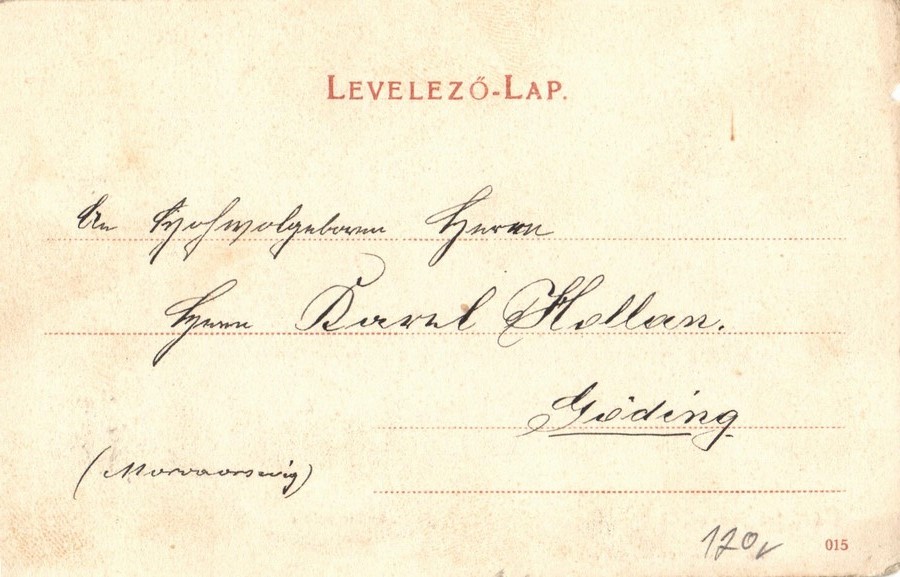 LEVELEZŐ-LAP.
An Hochwolgeboren Herrn
Herrn Karel Hollan.
Göding
(Morvaország)
120
015